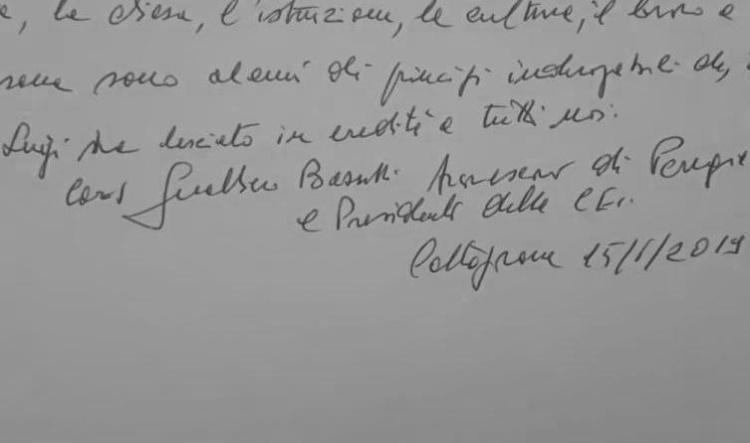 , la chiesa, l'istruzione, la cultura, il buono e
sono alcuni di principi inderogabili che,
Luigi ha lasciato in eredità a tutti noi.
Card Gualtiero Bassetti. Arcivescovo di Perugia
e Presidente della CEI.
Caltagirone 15/1/2019